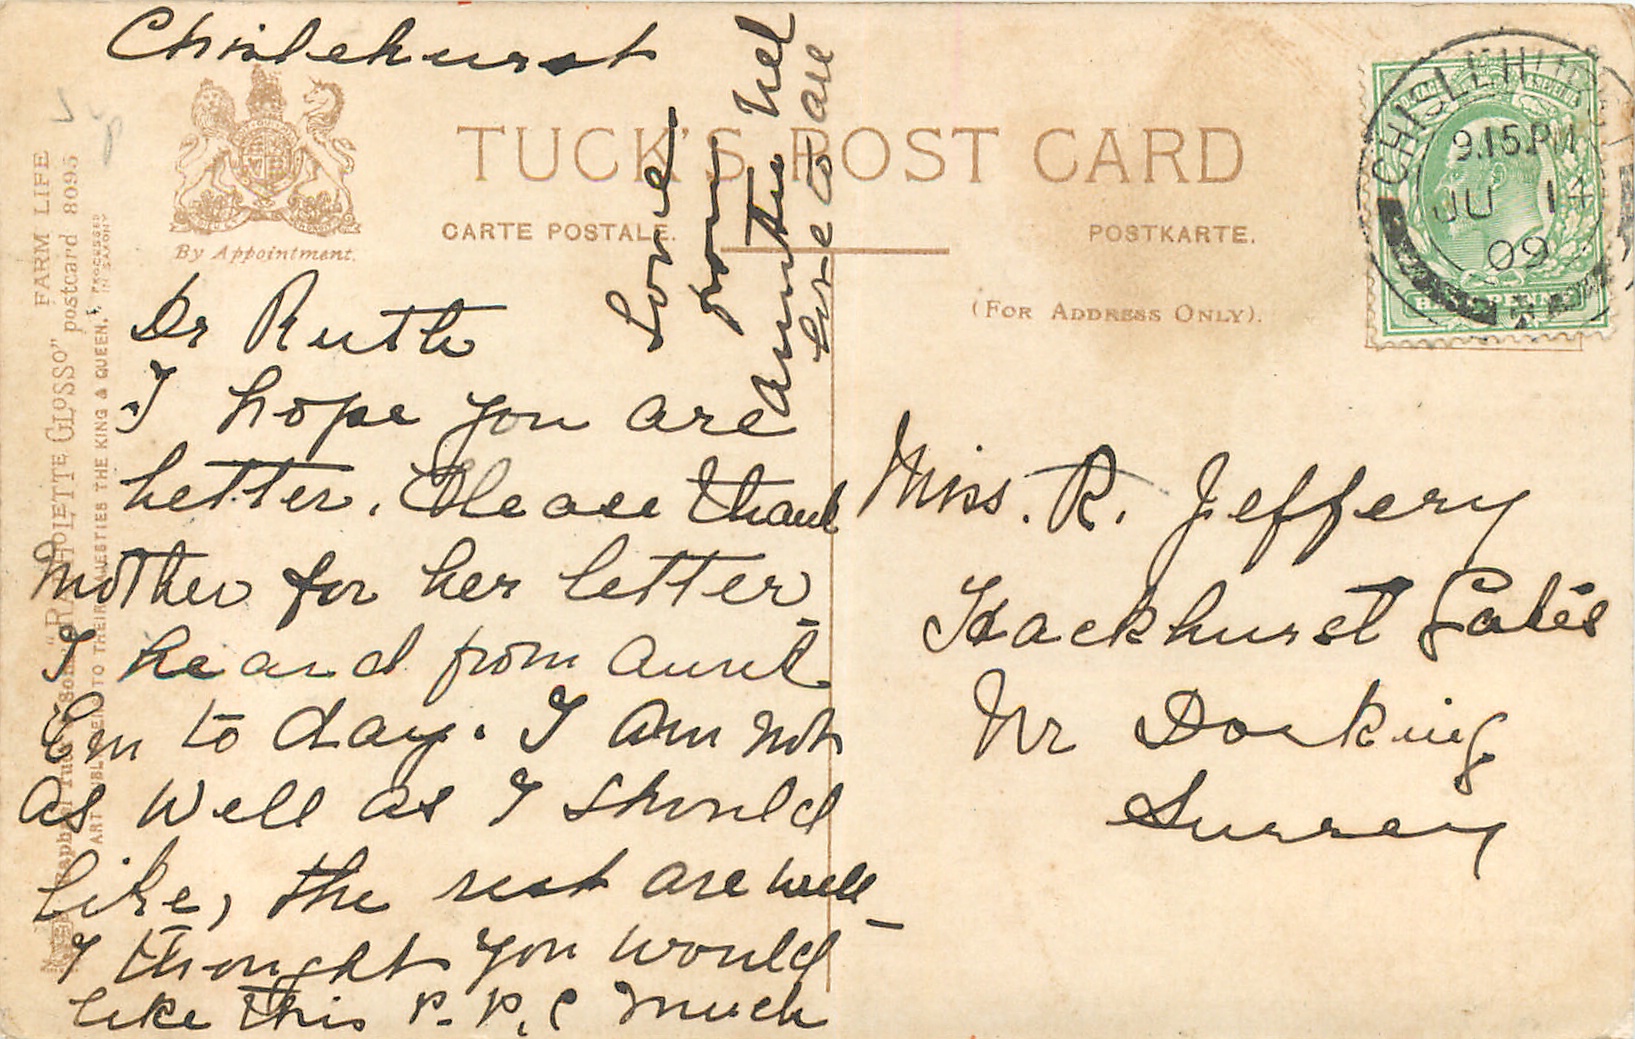 Chislehurst
TUCK'S POST CARD
CARTE POSTALE.
POSTKARTE.
By Appointment.
(FOR ADDRESS ONLY).
FARM LIFE
"GLOSSO" postcard 8095
PROCESSED
IN SAXONY
TO THEIR MAJESTIES THE KING & QUEEN.
CHISLEHURST
9.15.PM
JU 14
09
Dr Ruth
I hope you are
better. Please thank
Mother for her letter
I heard from Aunt
Em to day. I am not
as well as I should
like, the rest are well
I thought you would
like this P.P.C much
Love
from
Auntie Nel
love to all
Miss. R. Jeffery
Hackhurst Gates
Nr Dorking
Surrey